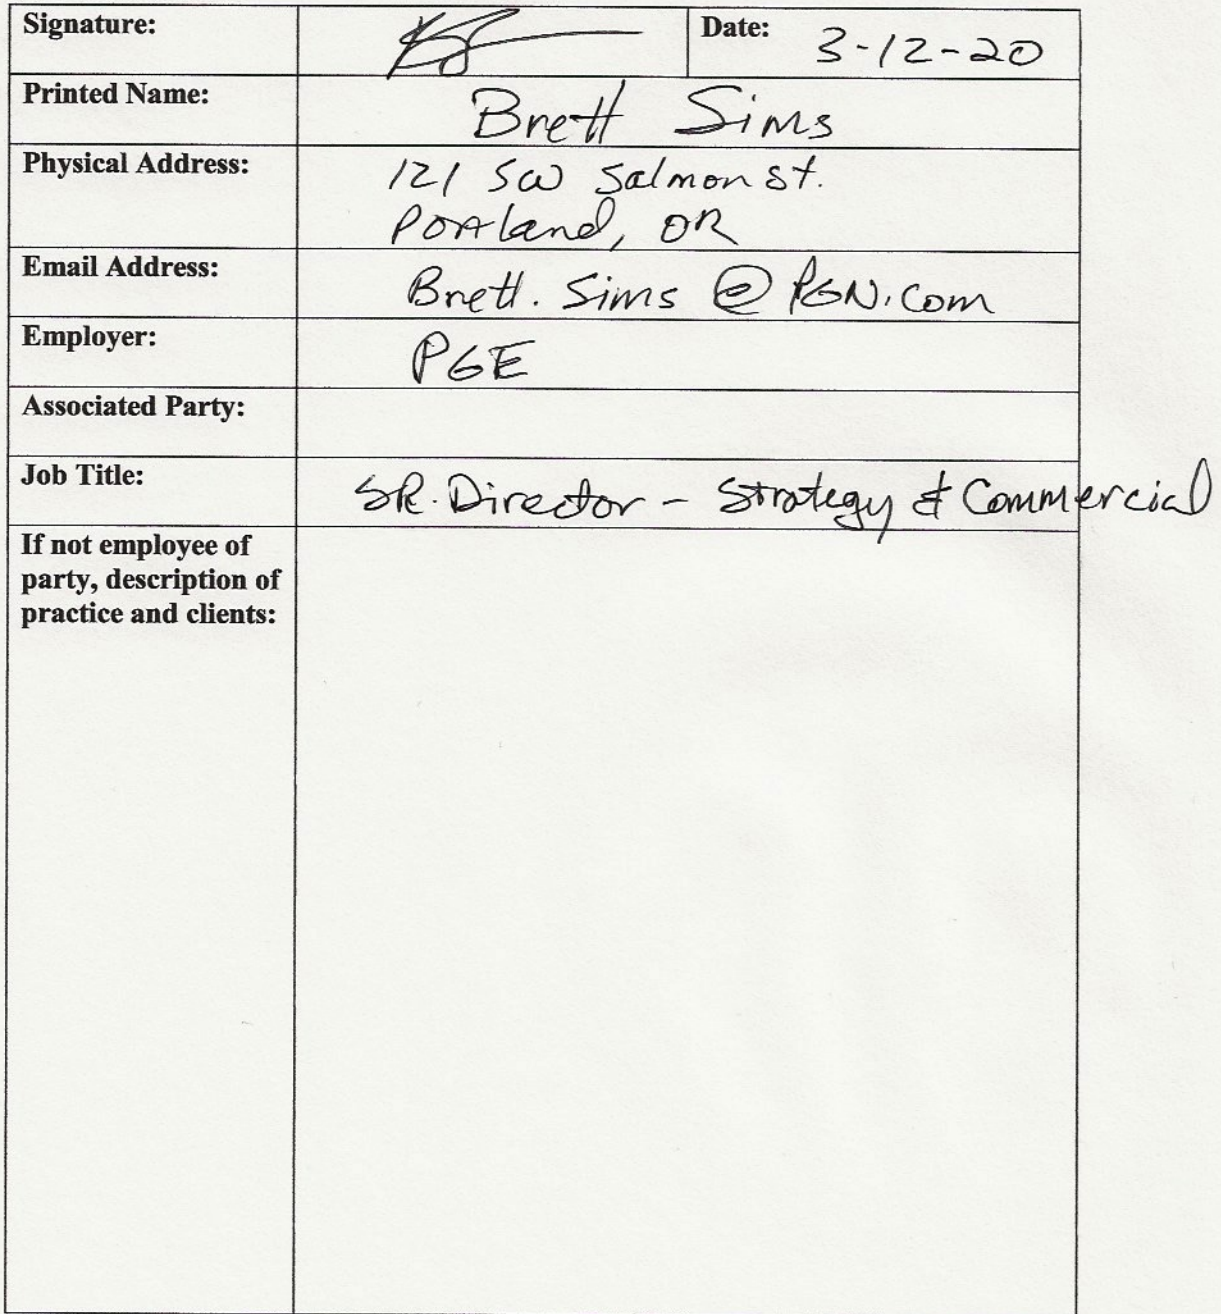 Signature:
Date: 3-12-20
Printed Name: Brett Sims
Physical Address: 121 SW Salmon St.
Portland, OR
Email Address: Brett.Sims@PGN.com
Employer: PGE
Associated Party:
Job Title: SR. Director - Strategy & Commercial
If not employee of
party, description of
practice and clients: